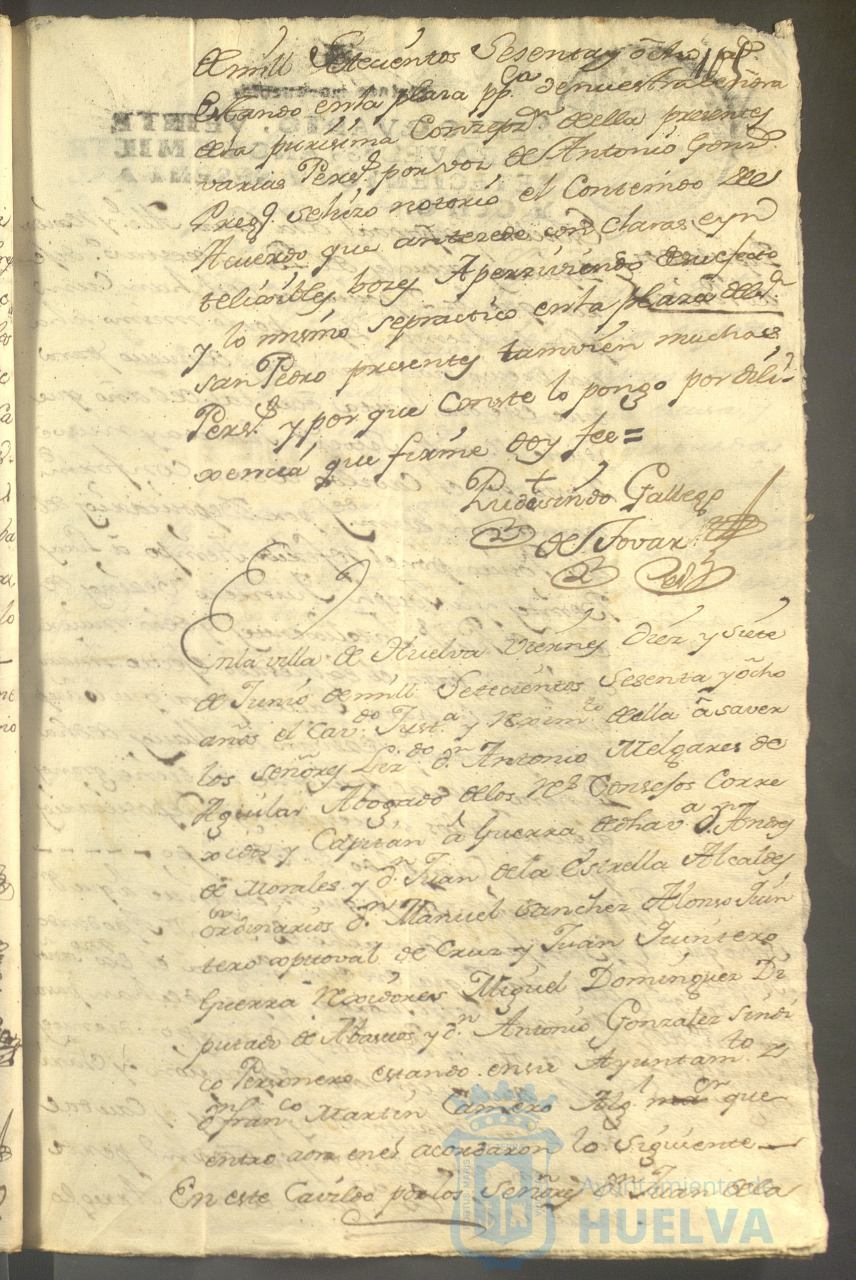 de mill Setecientos Sesenta y ocho as.
Estando en la plaza pp.ca de nuestra señora
de la purissima Conzepz.n della presentes
varias Pers.s por voz de Antonio Gonz.
Preg.o se hizo notorio el Contenido del
Acuerdo que antezede con claras e yn
telixibles bozes Aperziviendo de su efecto
y lo mismo se practico en la plaza de
san Pedro presentes tamvien muchas
Pers.s y por que Conste lo pongo por dili-
xencia que firme doy fee =
Rudesindo Gallego
de Tovar
En la villa de Huelva Viernes Diez y siete
de Junio de mill Setecientos Sesenta y ocho
años el Cav.do Just.a y Reximto della a saver
los señores Lizdo dn Antonio Melgares de
Aguilar Abogado de los Rs Consejos Corre
xidor y Capitan a Guerra de dha v.a dn Andres
de Morales y dn Juan de la Estrella Alcaldes
ordinarios dn Manuel Sanchez Alonso Quin
tero de Cruz y Juan Quintero
Guerra Rexidores Miguel Dominguez Di
putado de Abastos y dn Antonio Gonzalez Sindi
co Personero estando en su Ayuntamto
dn Franco Martin Camero Alg.l mor que
entro aora en el acordaron lo siguiente
En este Cavildo por los Señores dn Juan de la
Ayuntamiento de
HUELVA